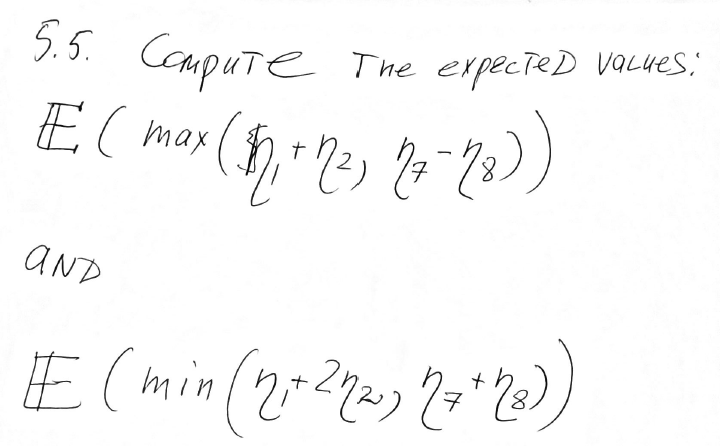 5.5. Compute The expected values:
𝔼 ( max ( η₁ + η₂, η₇ - η₈ ) )
AND
𝔼 ( min ( η₁ + 2η₂, η₇ + η₈ ) )